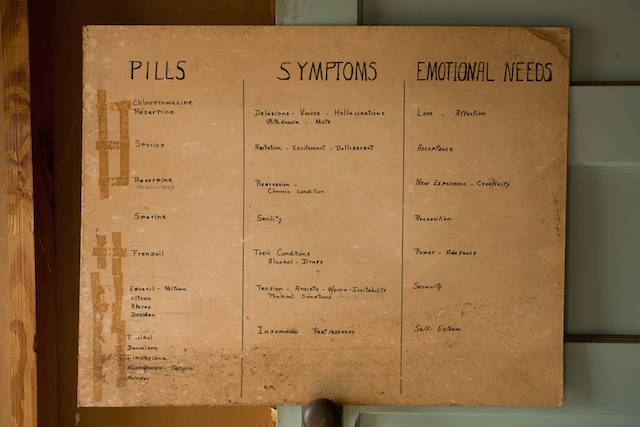 PILLS SYMPTOMS EMOTIONAL NEEDS
Chloropromazine
Reserpine
Delusions - Voices - Hallucinations
Withdrawn - Mute
Love - Affection
Sparine
Agitation - Excitement - Belligerent
Acceptance
Reserpine
Regression -
Chronic condition
New Experience - Creativity
Sparine
Senility
Recognition
Frenquil
Toxic Conditions
Alcohol - Drugs
Power - Adequacy
Equanil - Miltown
Ultran
Atarax
Doridan
Tension - Anxiety - Worry - Irritability
Physical Symptoms
Security
Dormison
Insomnia - Restlessness
Self- Esteem